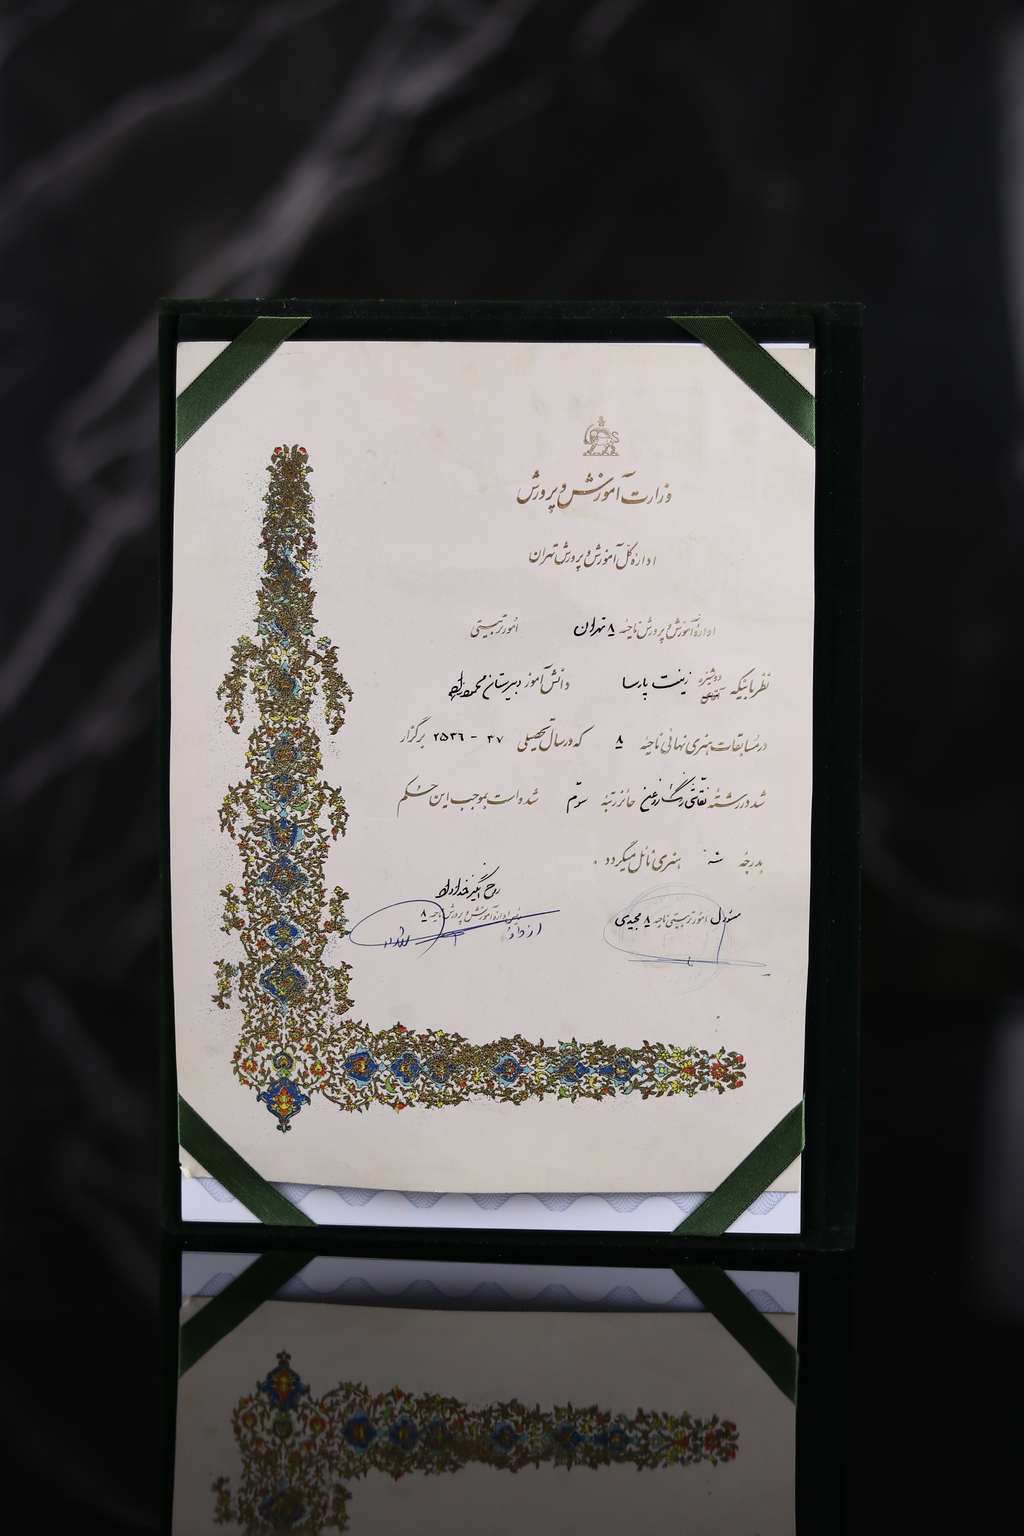 وزارت آموزش و پرورش
ادارهٔ کل آموزش و پرورش تهران
ادارهٔ آموزش و پرورش ناحیهٔ ۸ تهران امور تربیتی
نظر باینکه دوشیزه زینت پارسا دانش آموز دبیرستان
در مسابقات هنری نهائی ناحیهٔ ۸ که در سال تحصیلی ۳۷ - ۲۵۳۶ برگزار
شد در رشتهٔ نقاشی رنگ روغن حائز رتبهٔ سوّم شده است بموجب این حکم
بدرجهٔ هنری نائل میگردد .
روح انگیز خدادا
رئیس ادارهٔ آموزش و پرورش ناحیه ۸
مسئول امور تربیتی ناحیه ۸ مجیدی